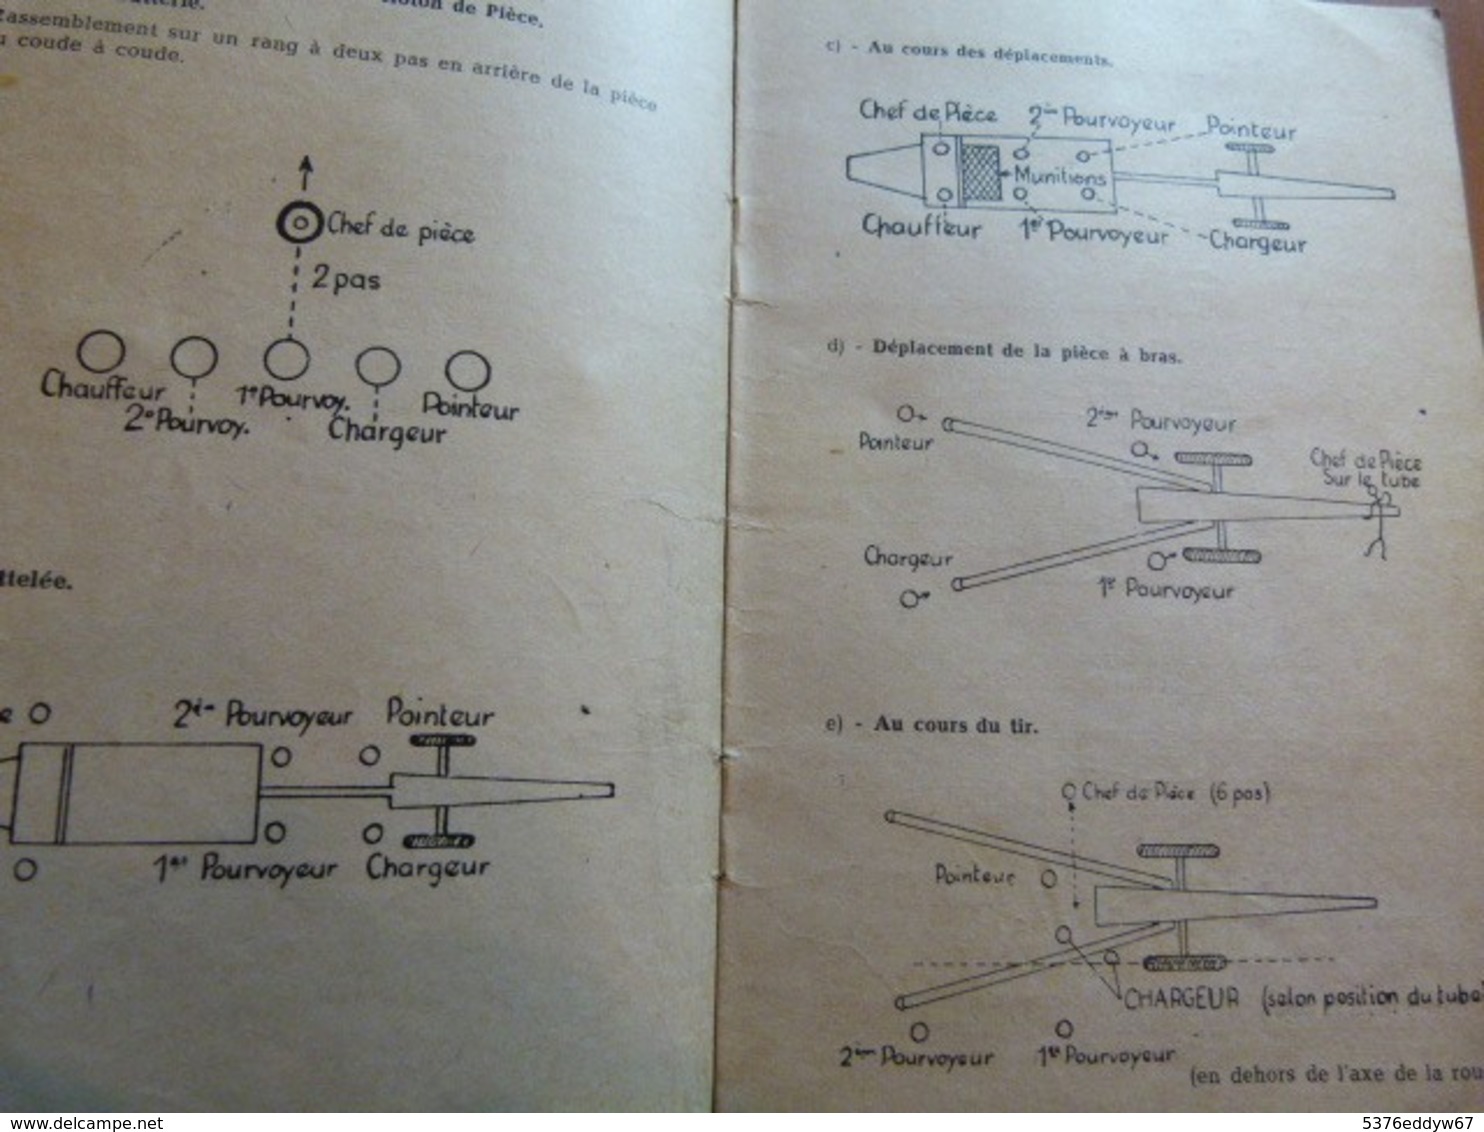 de Pièce.
Rassemblement sur un rang à deux pas en arrière de la pièce
coude à coude.
Chef de pièce
2 pas
Chauffeur
2e Pourvoy.
1er Pourvoy.
Chargeur
Pointeur
ttelée.
2ème Pourvoyeur
Pointeur
1er Pourvoyeur
Chargeur
c) - Au cours des déplacements.
Chef de Pièce
2ème Pourvoyeur
Pointeur
Munitions
Chauffeur
1er Pourvoyeur
Chargeur
d) - Déplacement de la pièce à bras.
Pointeur
2ème Pourvoyeur
Chef de Pièce
Sur le tube
Chargeur
1er Pourvoyeur
e) - Au cours du tir.
Chef de Pièce (6 pas)
Pointeur
CHARGEUR (selon position du tube)
2ème Pourvoyeur
1er Pourvoyeur
(en dehors de l'axe de la rou
www.delcampe.net
5376eddyw67